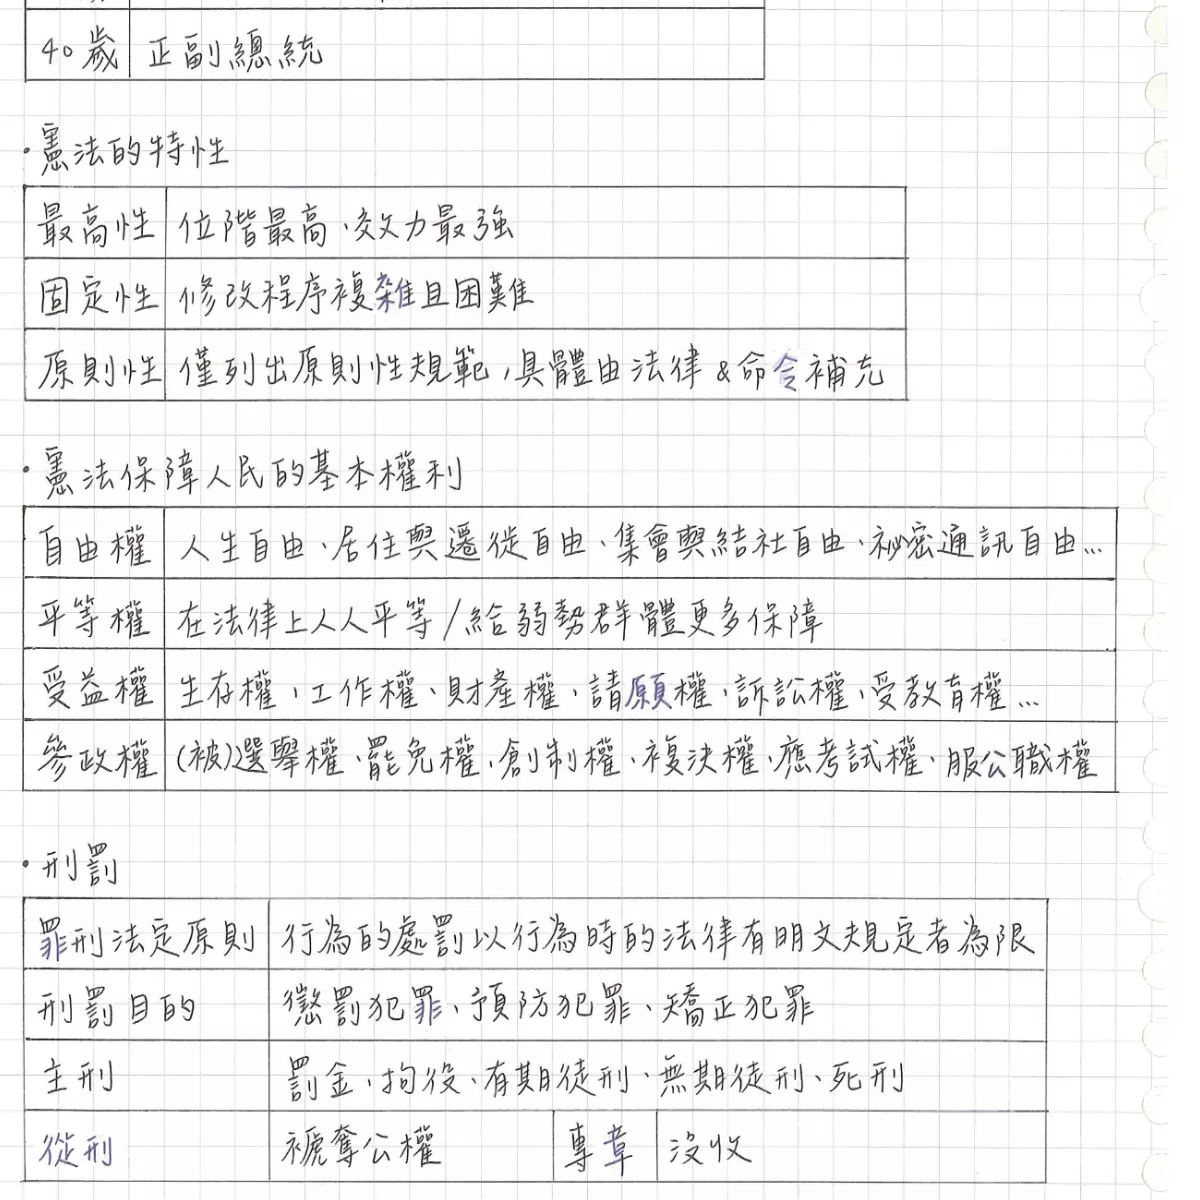 40歲 正副總統
·憲法的特性
最高性 位階最高、效力最強
固定性 修改程序複雜且困難
原則性 僅列出原則性規範,具體由法律&命令補充
·憲法保障人民的基本權利
自由權 人生自由、居住與遷徙自由、集會與結社自由、祕密通訊自由...
平等權 在法律上人人平等/給弱勢群體更多保障
受益權 生存權、工作權、財產權、請願權、訴訟權、受教育權...
參政權 (被)選舉權、罷免權、創制權、複決權、應考試權、服公職權
·刑罰
罪刑法定原則 行為的處罰以行為時的法律有明文規定者為限
刑罰目的 懲罰犯罪、預防犯罪、矯正犯罪
主刑 罰金、拘役、有期徒刑、無期徒刑、死刑
從刑 褫奪公權 專章 沒收